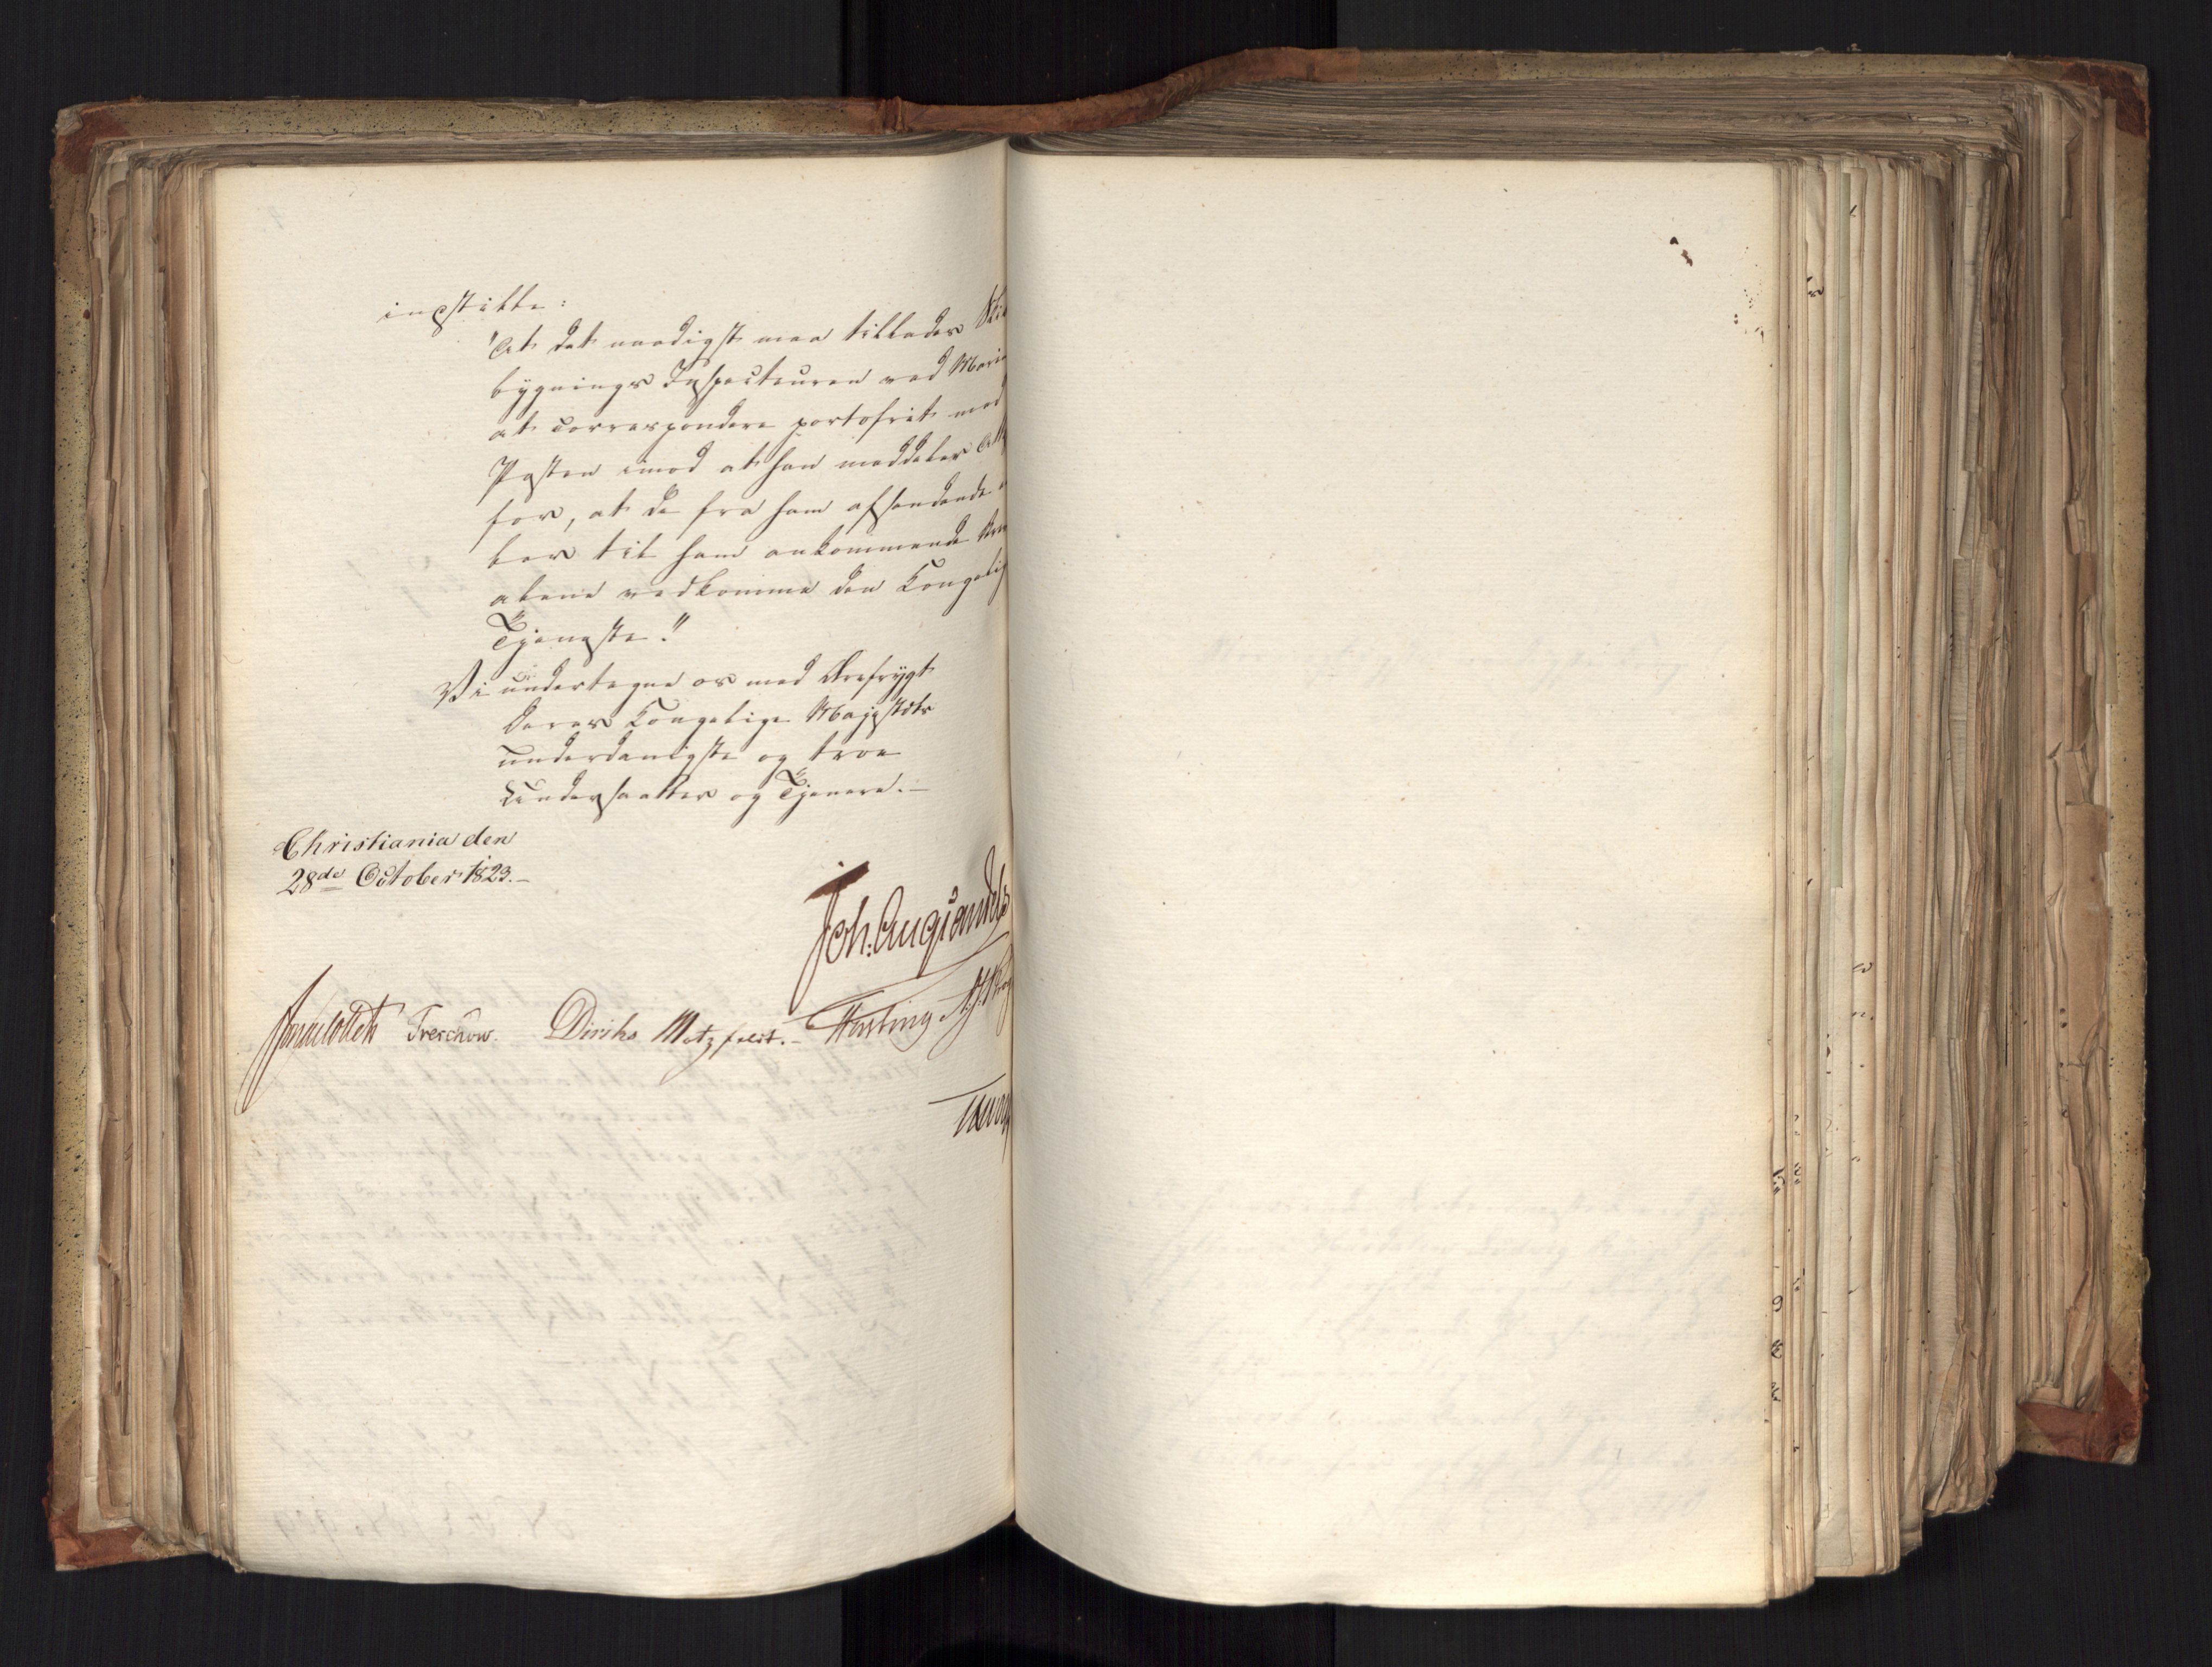 indstille:
"At det naadigst maa tillades Ski
bygnings Inspecteuren ved Marin
at correspondere portofrit med
Posten imod at han meddeler Att
for, at de fra ham afsendende e
ler til ham ankommende Brev
alene vedkomme den Kongelig
Tjeneste."
Vi undertegne os med Ærefrygt
Deres Kongelige Majestæts
underdanigste og troe
Undersaatter og Tjenere.—
Christiania den
28de October 1823.—
Joh: Aug Sandels
Sommerhielm Treschow. Diriks Motzfeldt.— Fasting